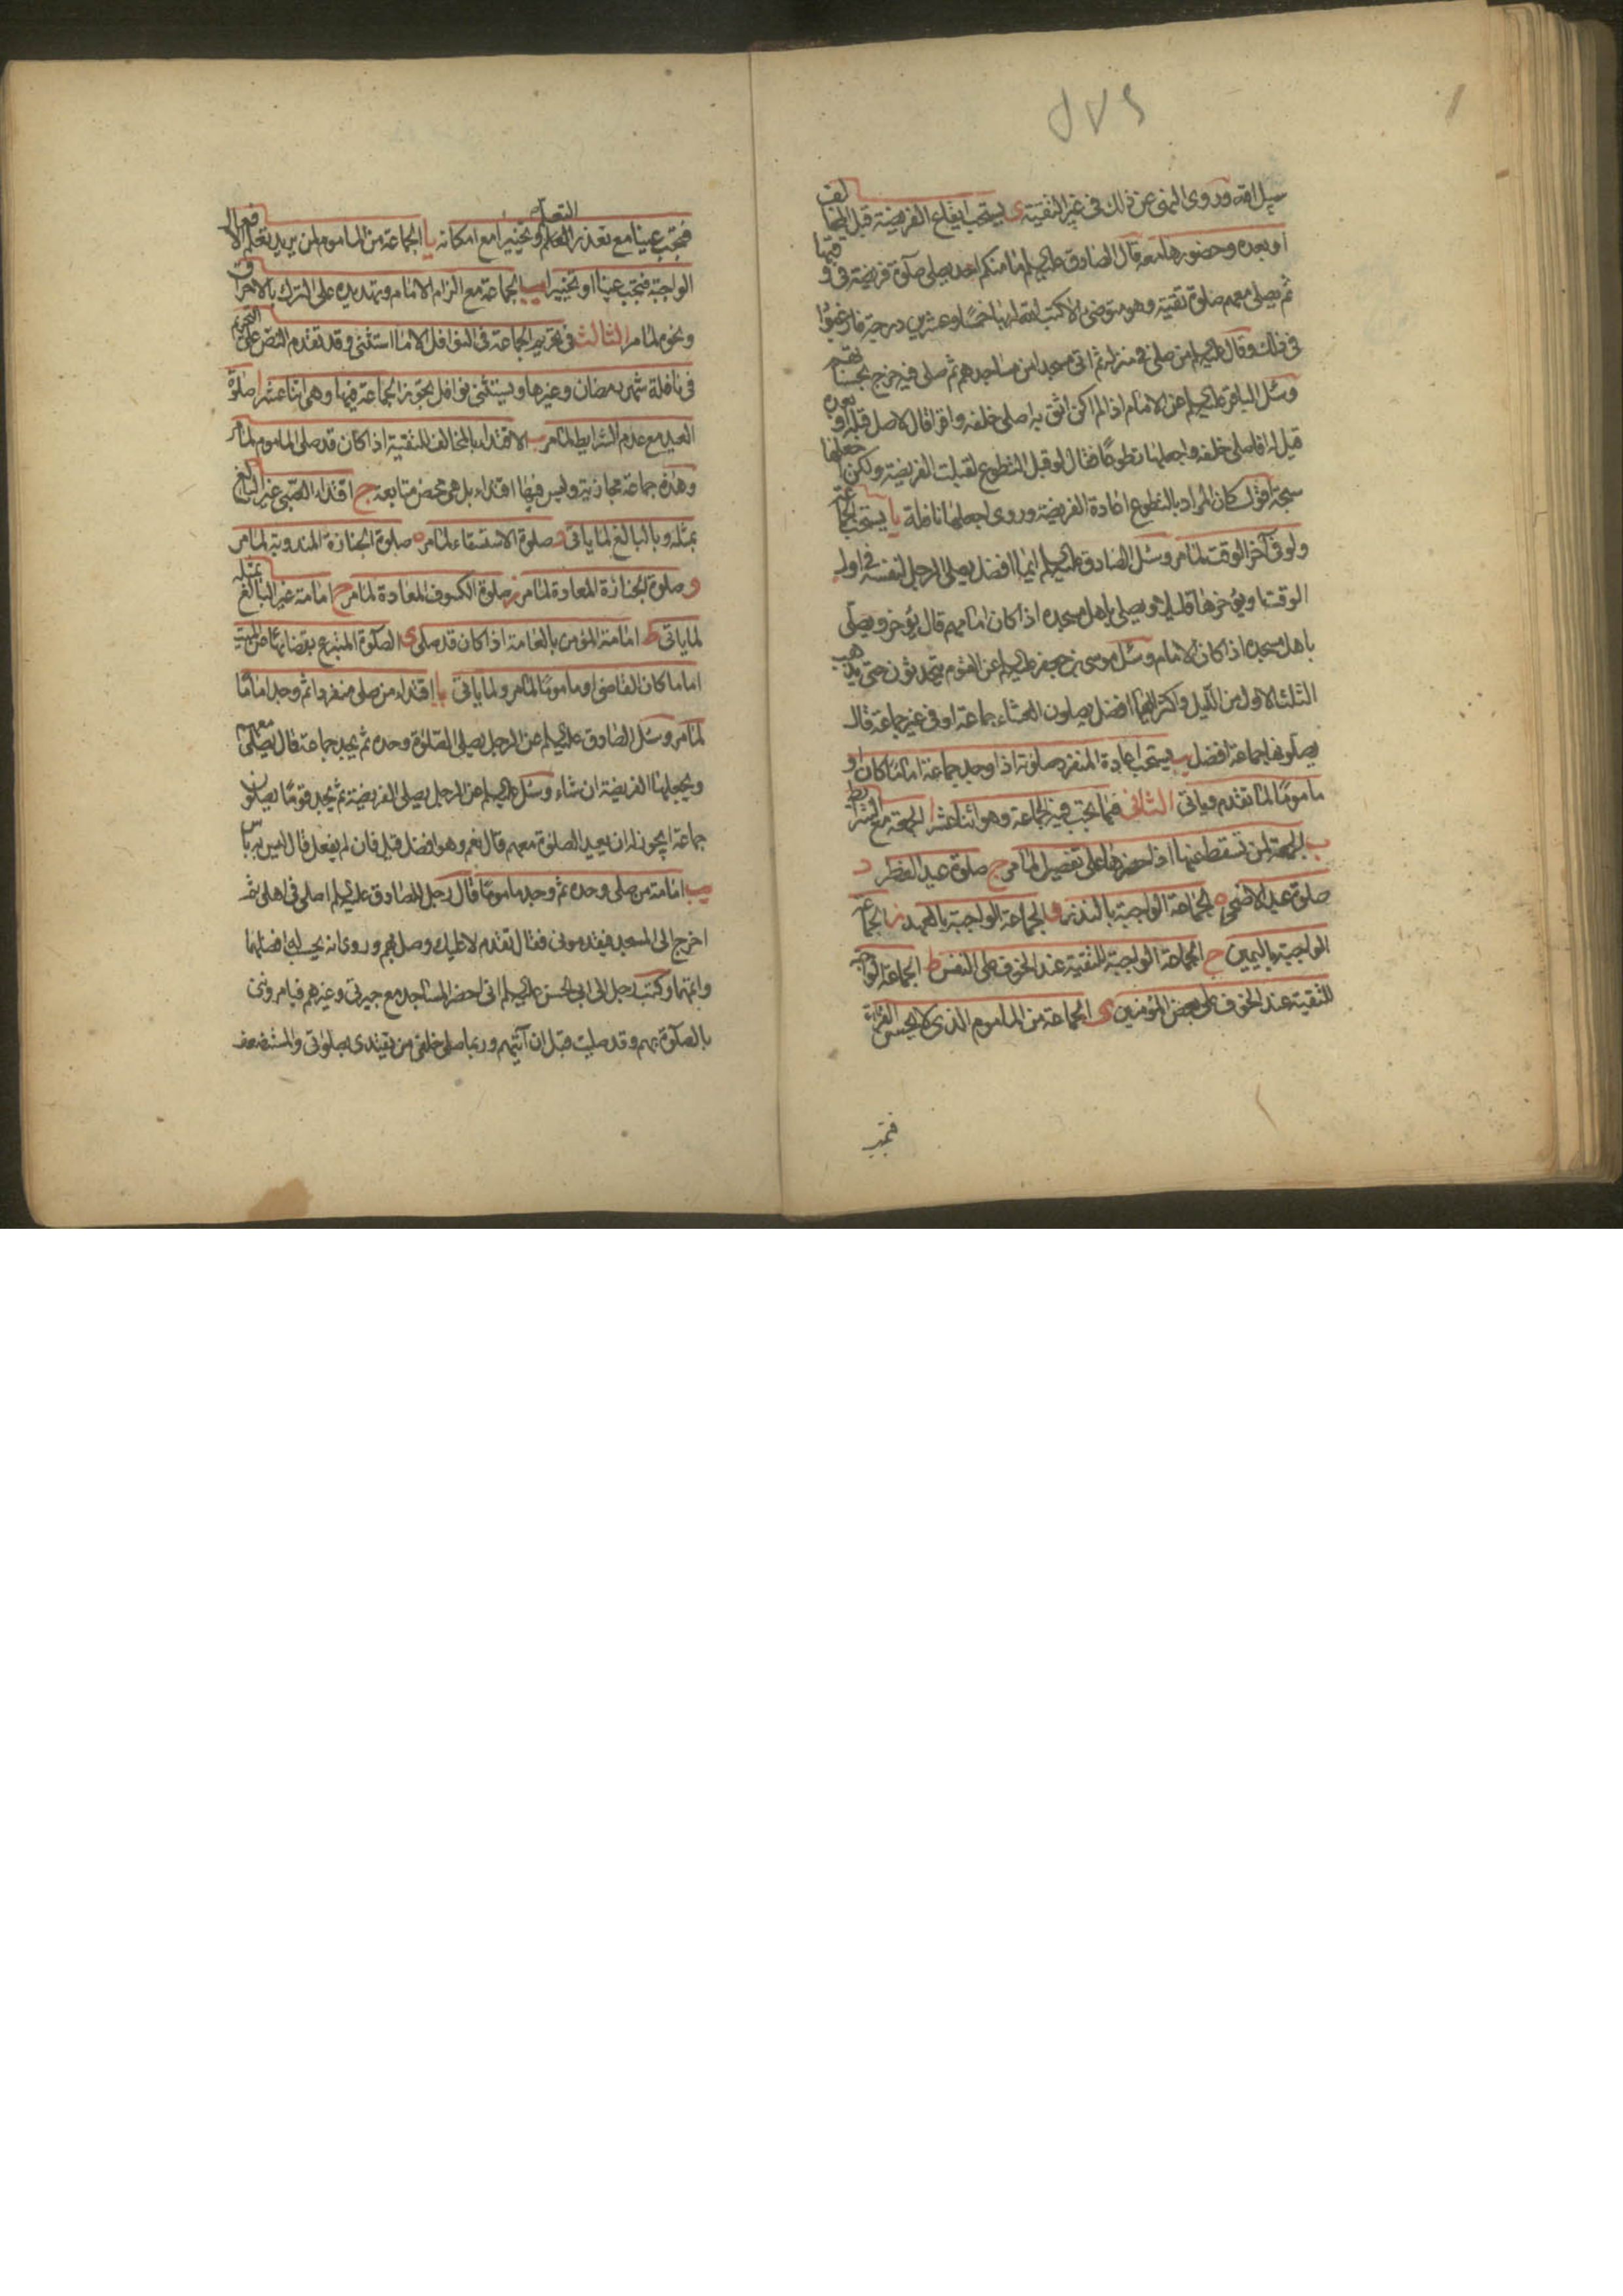 سبيل الله وروى النهى عن ذلك فى غير التقية ى يستحب ايقاع الفريضة قبل المخالف
او بعده وحضورها معه قال الصادق عليه السلم ما منكم احد يصلى صلوة فريضة فى وقتها
ثم يصلى معهم صلوة تقية وهو متوضئ الا كتب الله له بها خمسا وعشرين درجة فارغبوا
فى ذلك وقال عليه السلم من صلى فى منزله ثم اتى مسجدا من مساجدهم ثم صلى فيه خرج بحسناتهم
وسئل الباقر عليه السلم عن الامام اذا لم اكن اثق به اصلى خلفه واقرا قال لا صل قبله او بعده
قيل له افاصلى خلفه واجعلها تطوعا فقال لو قبل التطوع لقبلت الفريضة ولكن اجعلها
سبحة اقول كان المراد بالتطوع اعادة الفريضة وروى اجعلها نافلة يا يستحب الجماعة
ولو فى آخر الوقت لما مر وسئل الصادق عليه السلم ايما افضل يصلى الرجل لنفسه فى اول
الوقت او يؤخرها قليلا ويصلى باهل مسجده اذا كان امامهم قال يؤخر ويصلى
باهل مسجده اذا كان الامام وسئل موسى بن جعفر عليه السلم عن القوم يتحدثون حتى يذهب
الثلث الاول من الليل واكثر ايهما افضل يصلون العشاء جماعة او فى غير جماعة قال
يصلونها جماعة افضل يب يستحب اعادة المنفرد صلوته اذا وجد جماعة اماما كان او
ماموما لما تقدم وياتى الثانى فيما يجب فيه الجماعة وهو اثنا عشر ا الجمعة مع الشرايط
ب الجمعة لمن تسقط عنها اذا حضرها على تفصيل لما مر ج صلوة عيد الفطر د
صلوة عيد الاضحى ه الجماعة الواجبة بالنذر و الجماعة الواجبة بالعهد ز الجماعة
الواجبة باليمين ح الجماعة الواجبة للتقية عند الخوف على النفس ط الجماعة الواجبة
للتقية عند الخوف على بعض المؤمنين ى الجماعة من الماموم الذى لا يحسن القرائة
فتجب
فتجب عينا مع تعذر التعلم وتخييرا مع امكانه يا الجماعة من الماموم لمن يريد تعلم الافعال
الواجبة فتجب عينا او تخييرا يب الجماعة مع الزام الامام وتهديده على الترك بالاحراق
ونحوه لما مر الثالث فى تحريم الجماعة فى النوافل الا ما استثنى وقد تقدم النص على التحريم
فى نافلة شهر رمضان وغيرها ويستثنى نوافل يجوز الجماعة فيها وهى اثنا عشر ا صلوة
العيد مع عدم الشرايط لما مر ب الاقتداء بالمخالف للتقية اذا كان قد صلى الماموم لما مر
وهذه جماعة مجازية وليس فيها اقتداء بل هى محض متابعة ج اقتداء الصبى غير البالغ
بمثله وبالبالغ لما ياتى د صلوة الاستسقاء لما مر ه صلوة الجنازة المندوبة لما مر
و صلوة الجنازة المعادة لما مر ز صلوة الكسوف المعادة لما مر ح امامة غير البالغ بمثله
لما ياتى ط امامة المؤمن بالعامة اذا كان قد صلى ى الصلوة المتبرع بقضائها عن الميت
اماما كان القاضى او ماموما لما مر ولما ياتى يا اقتداء من صلى منفردا ثم وجد اماما
لما مر وسئل الصادق عليه السلم عن الرجل يصلى الصلوة وحده ثم يجد جماعة قال يصلى معهم
ويجعلها الفريضة ان شاء وسئل عليه السلم عن الرجل يصلى الفريضة ثم يجد قوما يصلون
جماعة ايجوز له ان يعيد الصلوة معهم قال نعم وهو افضل قيل فان لم يفعل قال ليس به باس
يب امامة من صلى وحده ثم وجد ماموما قال رجل للصادق عليه السلم اصلى فى اهلى ثم
اخرج الى المسجد فيقدمونى فقال تقدم لا عليك وصل بهم وروى انه يحسب له افضلهما
واتمهما وكتب رجل الى ابى الحسن عليه السلم انى احضر المساجد مع جيرتى وغيرهم فيامروننى
بالصلوة بهم وقد صليت قبل ان آتيهم وربما صلى خلفى من يقتدى بصلوتى والمستضعف